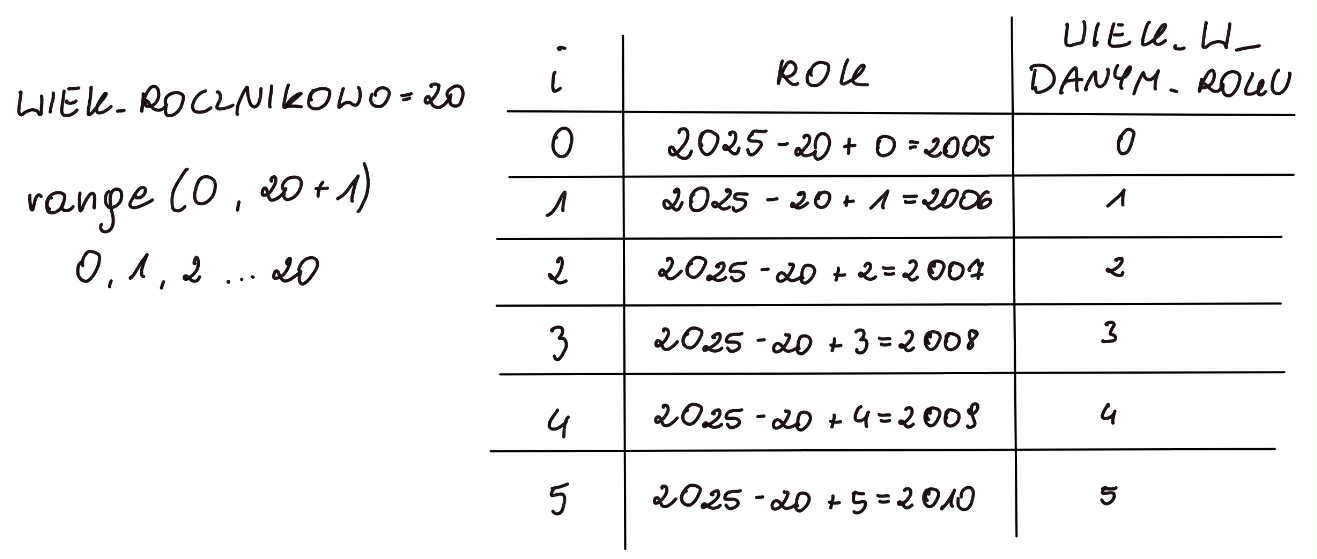 WIEK_ROCZNIKOWO = 20
range (0, 20+1)
0, 1, 2 ... 20
i ROK WIEK_W_
DANYM_ROKU
0 2025 - 20 + 0 = 2005 0
1 2025 - 20 + 1 = 2006 1
2 2025 - 20 + 2 = 2007 2
3 2025 - 20 + 3 = 2008 3
4 2025 - 20 + 4 = 2009 4
5 2025 - 20 + 5 = 2010 5